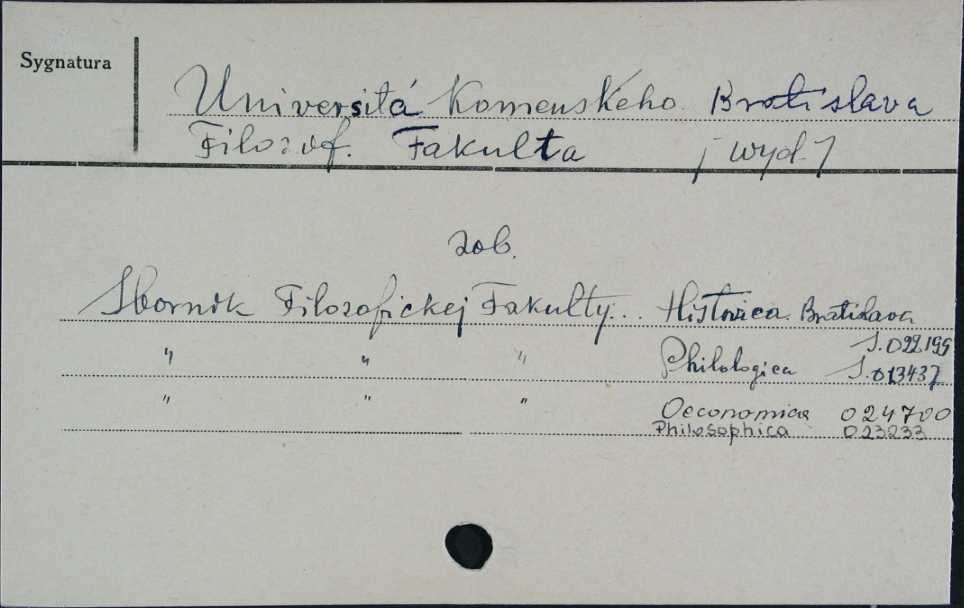 Sygnatura
Universitá Komenskeho Bratislava
Filozof. Fakulta [wyd.]
zob.
Sbornik Filozofickej Fakulty... Historica Bratislava
S. 022199
" " " Philologica S. 013437
" " " Oeconomica 024700
Philosophica 023233